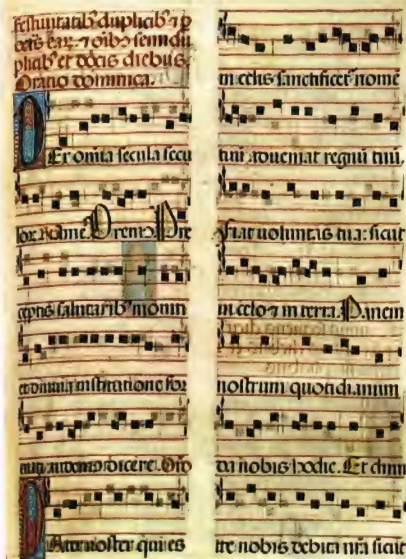 festiuitatib duplicib ⁊ p
octis ear ⁊ oibꝰ semidu
plicib et doctis diebus.
Oratio dominica.
Per omia secula secu
lor. ℟ Amē. Oremꝰ. Pre
ceptis salutarib monit
et diuina institutione for
mati audemꝰ dicere. Oro
Pater noster qui es
in celis sanctificet nome
tuū. adueniat regnū tuū.
fiat uoluntas tua: sicut
in celo ⁊ in terra. Panem
nostrum quotidianum
da nobis hodie. Et dimi
tte nobis debita nrā sicut